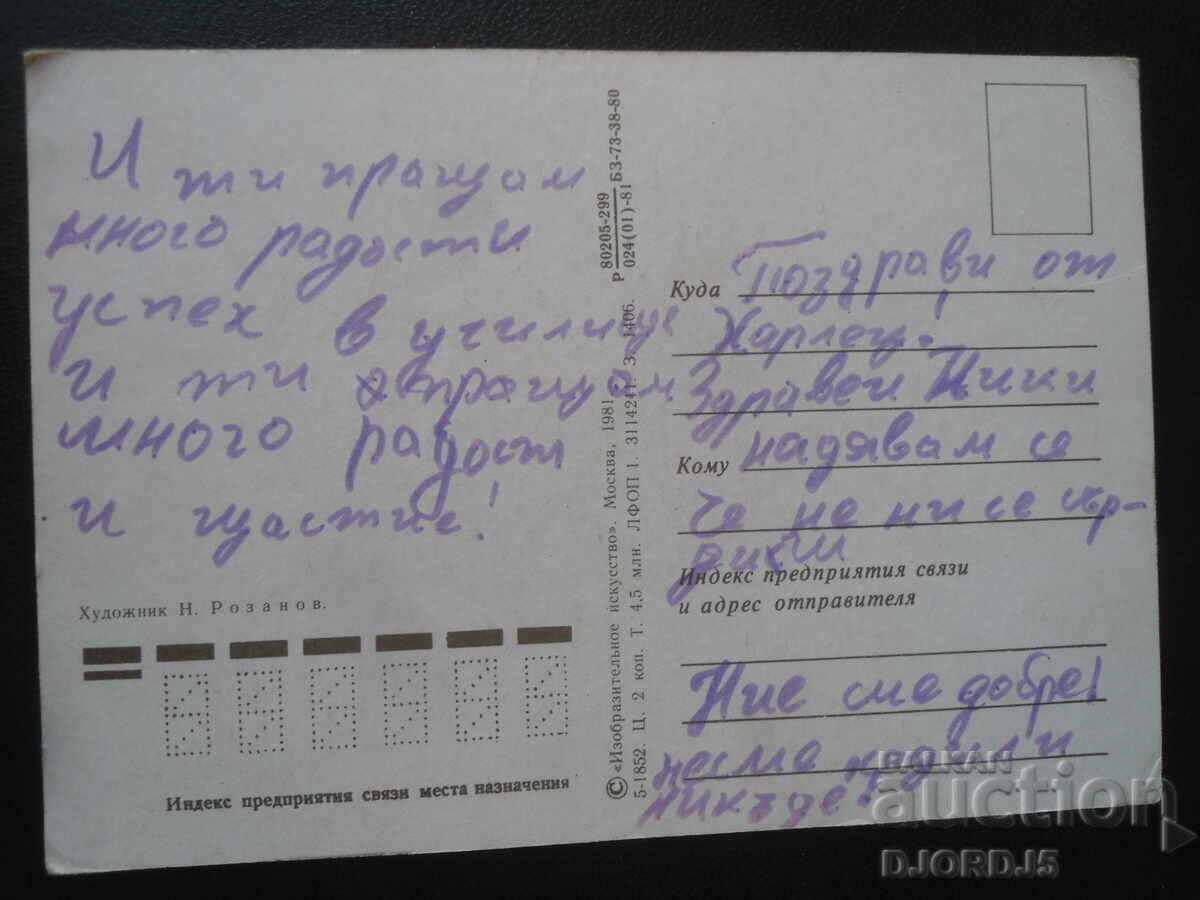 И ти пращам
много радости
успех в училище
и ти пращам
много радост
и щастие!
Художник Н. Розанов.
Индекс предприятия связи места назначения
© «Изобразительное искусство». Москва, 1981.
5-1852. Ц. 2 коп. Т. 4,5 млн. ЛФОП 1. З. 1406.
Р 80205-299 БЗ-73-38-80
024(01)-81
Куда Поздрави от
Харлец!
Здравей Ники
Кому надявам се
че не ни се сър-
диш
Индекс предприятия связи
и адрес отправителя
Ние сме добре!
несме ходили
никъде!
BALKAN
auction
DJORDJ5